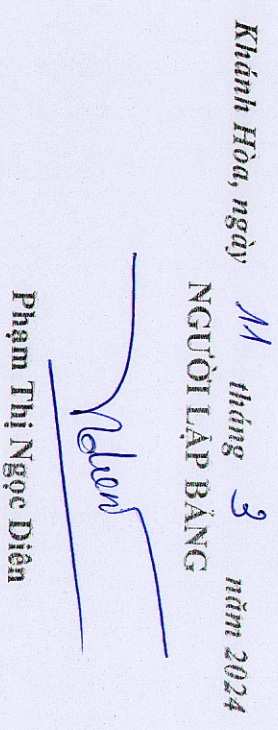 Khánh Hòa, ngày 11 tháng 3 năm 2024
NGƯỜI LẬP BẢNG
Ndien
Phạm Thị Ngọc Diên